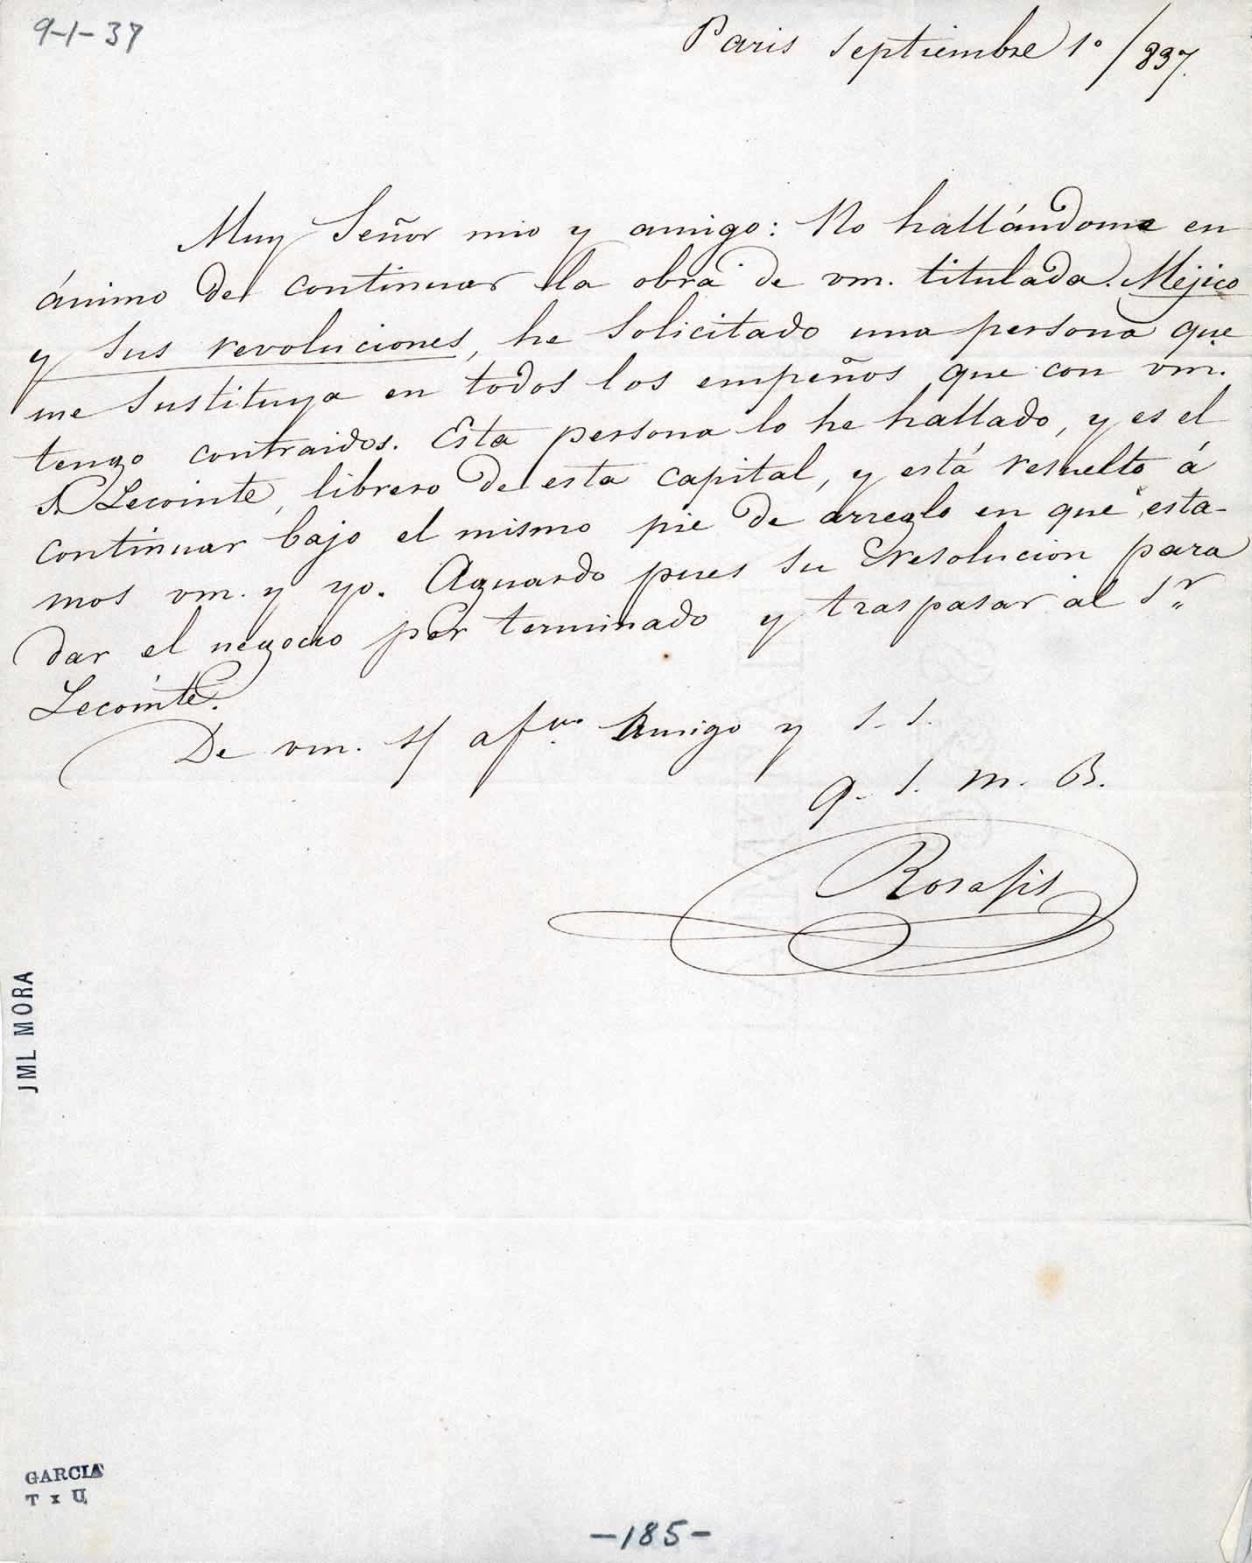 9-1-37
Paris Septiembre 1º/837.
Muy Señor mio y amigo: No hallándome en
ánimo de continuar la obra de vm. titulada Méjico
y sus revoluciones, he solicitado una persona que
me sustituya en todos los empeños que con vm.
tengo contraidos. Esta persona lo he hallado, y es el
S. Lecointe, librero de esta capital, y está resuelto á
continuar bajo el mismo pie de arreglo en que esta-
mos vm. y yo. Aguardo pues su resolucion para
dar el negocio por terminado y traspasar al Sr
Lecointe.
De vm. s/ afmo. Amigo y S. S.
q. S. M. B.
Rosa
JML MORA
GARCIA
-185-